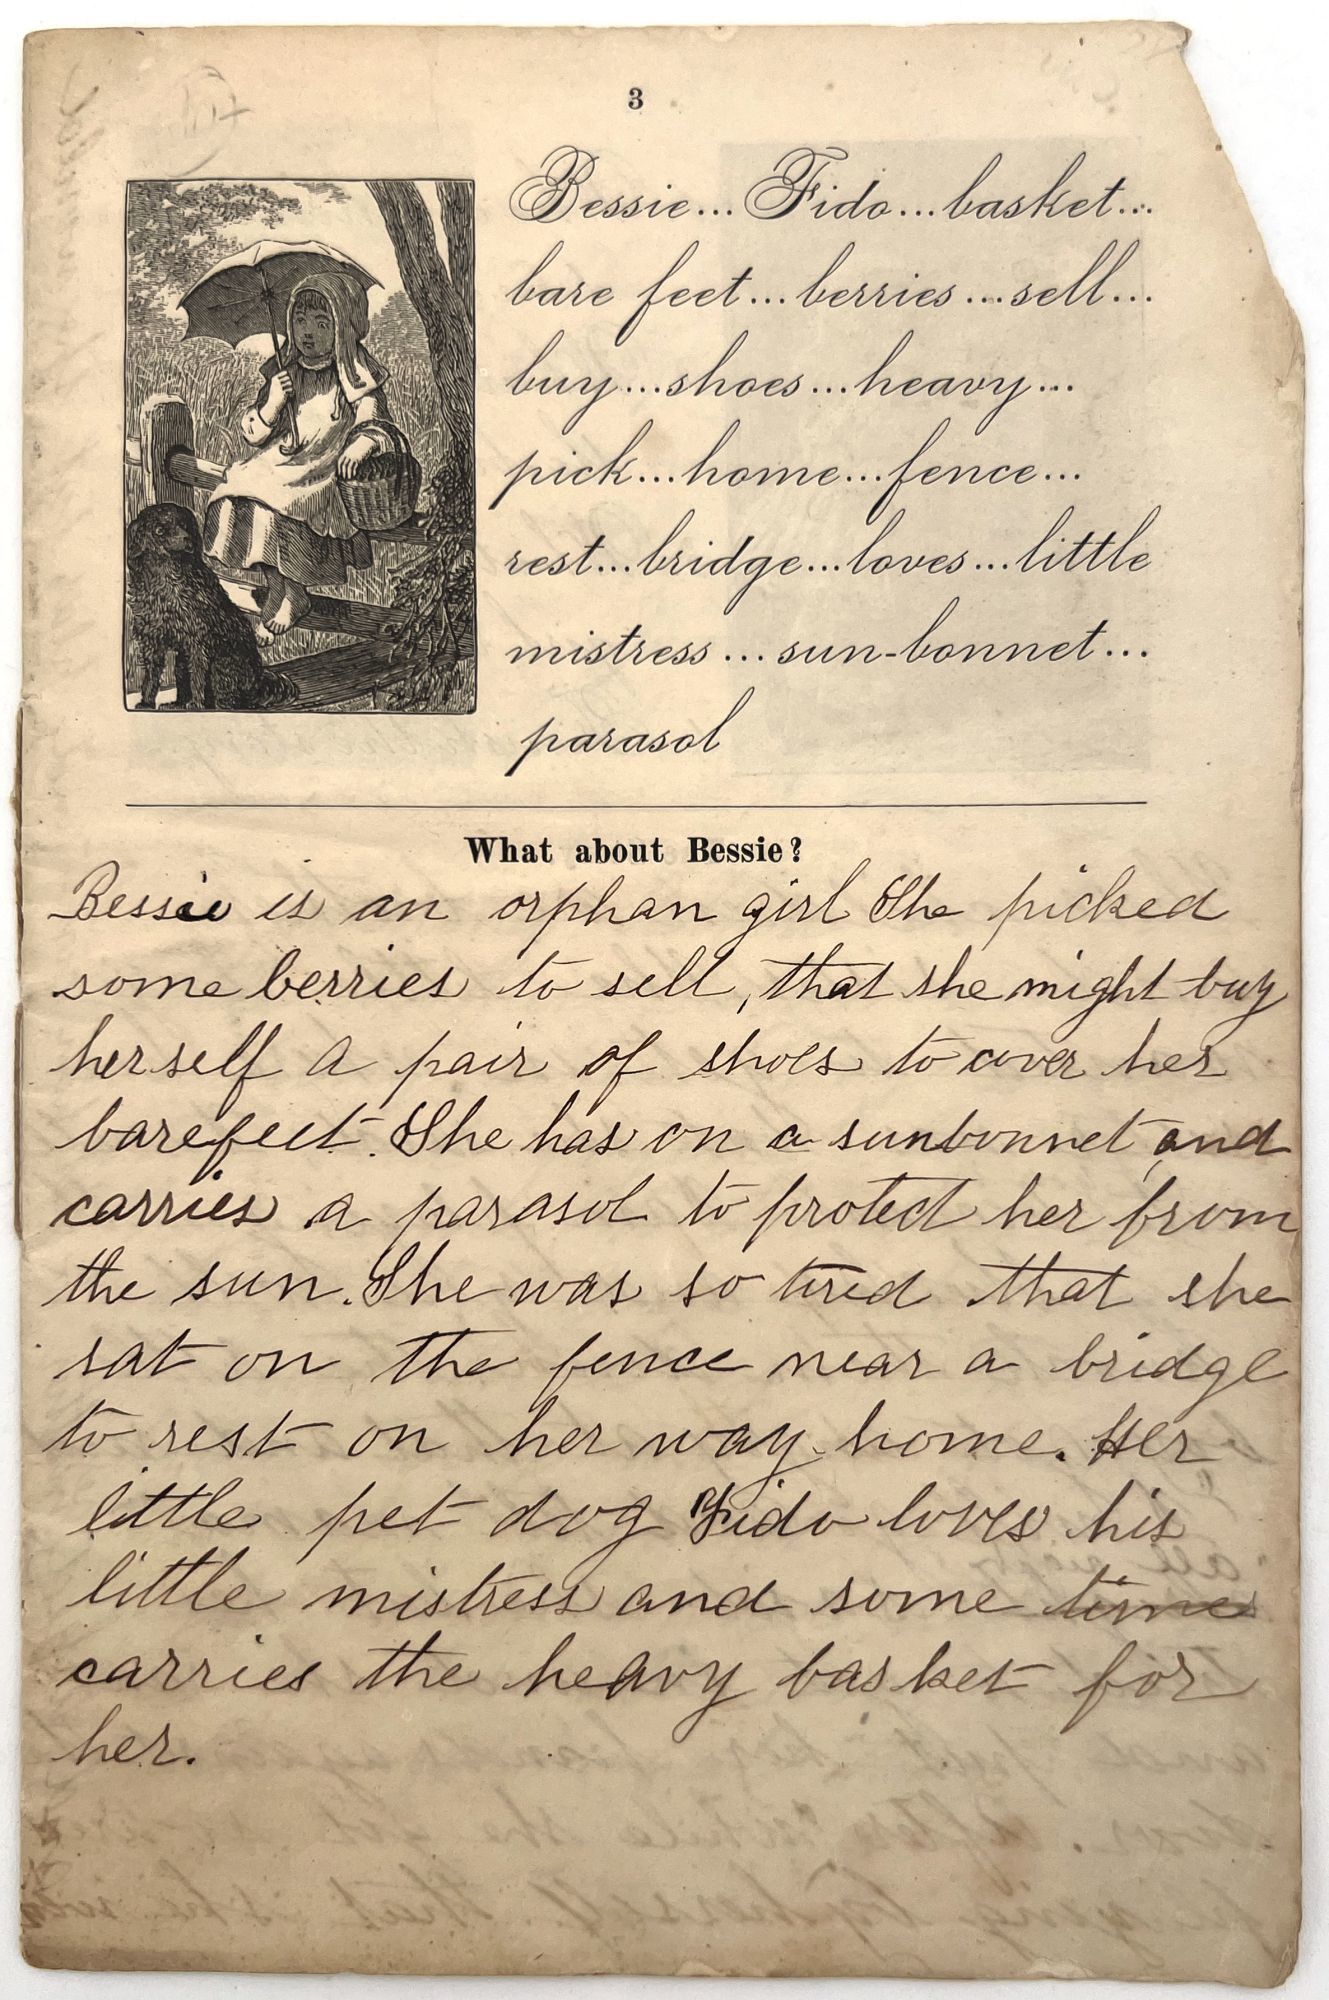 3
Bessie...Fido...basket...
bare feet...berries...sell...
buy...shoes...heavy...
pick...home...fence...
rest...bridge...loves...little
mistress...sun-bonnet...
parasol
What about Bessie?
Bessie is an orphan girl She picked
some berries to sell, that she might buy
herself a pair of shoes to cover her
barefeet. She has on a sunbonnet, and
carries a parasol to protect her from
the sun. She was so tired that she
sat on the fence near a bridge
to rest on her way home. Her
little pet dog Fido loves his
little mistress and some times
carries the heavy basket for
her.